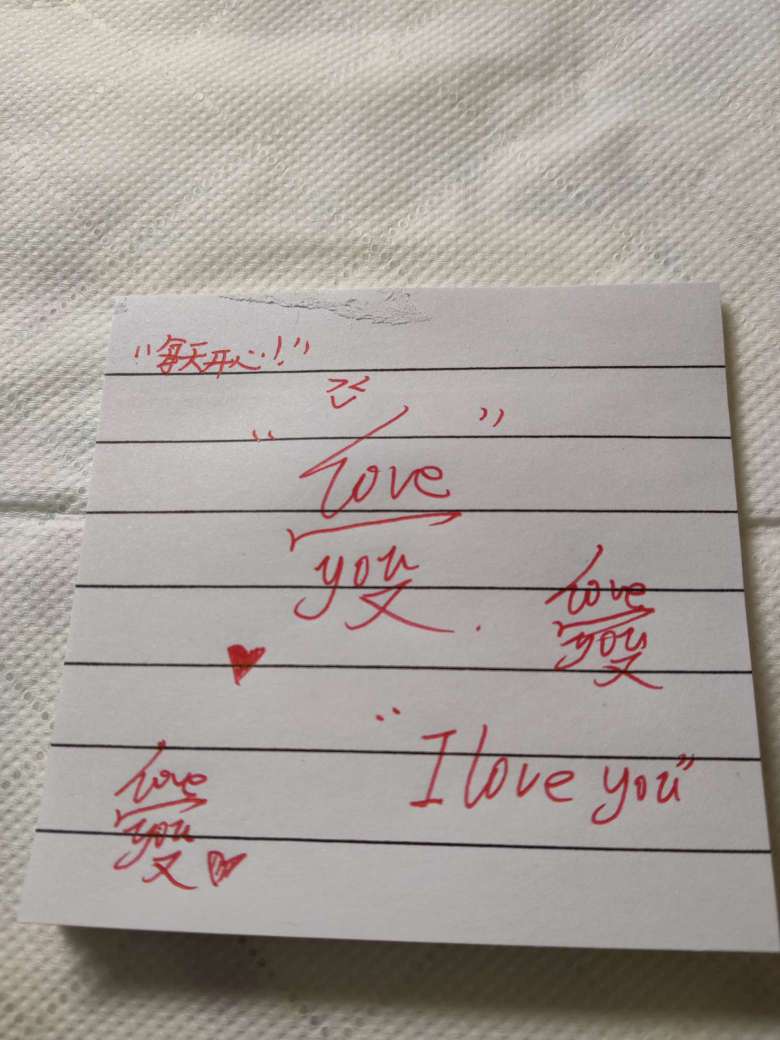 "每天开心!"
"love
you
又"
love
you
又
"I love you"
love
you
又